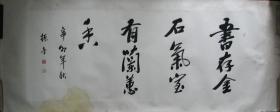 書存金
石氣室
有蘭蕙
香
辛卯年秋